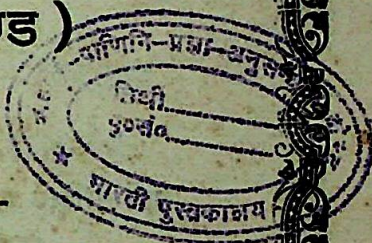 ड )
पाणिनि-प्रज्ञा-अनुसं
तिथी
पु०सं०
भारती पुस्तकालय